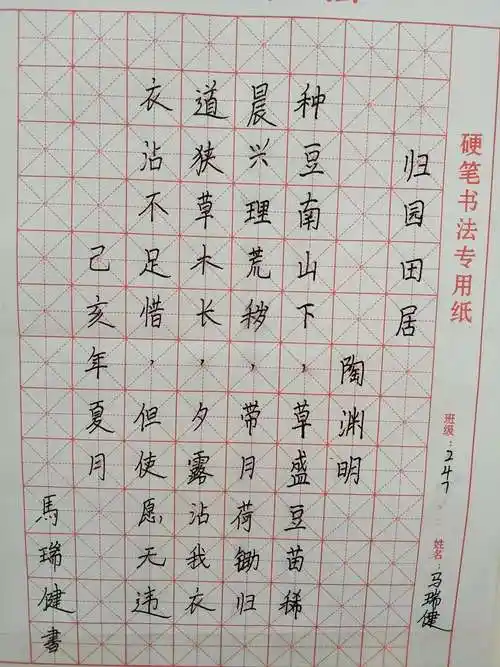 硬笔书法专用纸
班级：247
姓名：马瑞健
归园田居
陶渊明
种豆南山下，草盛豆苗稀
晨兴理荒秽，带月荷锄归
道狭草木长，夕露沾我衣
衣沾不足惜，但使愿无违
己亥年夏月
馬瑞健書